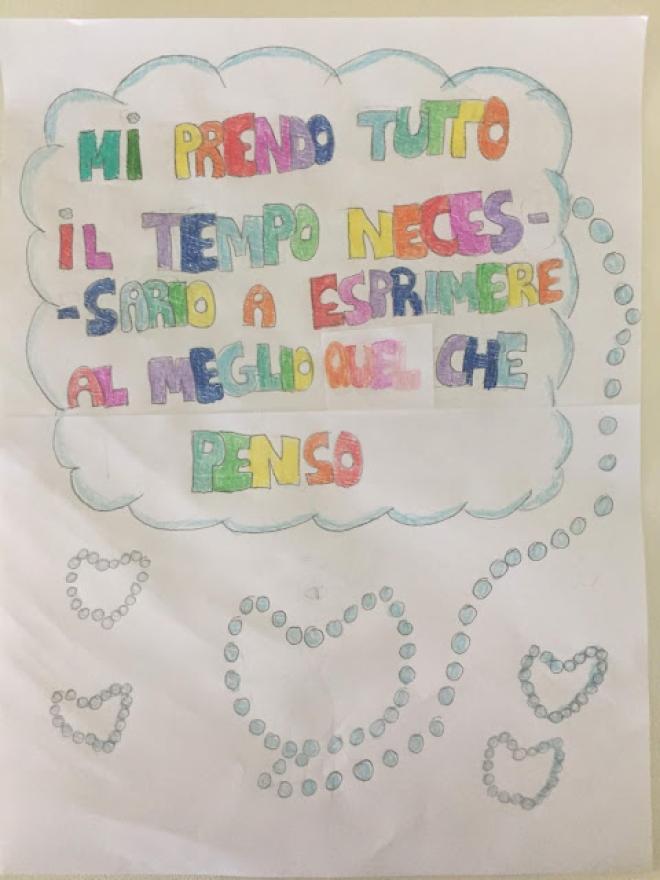 Mi PRENDO TUTTO
iL TEMPO NECES-
-SARIO A ESPRIMERE
AL MEGLIO QUEL CHE
PENSO